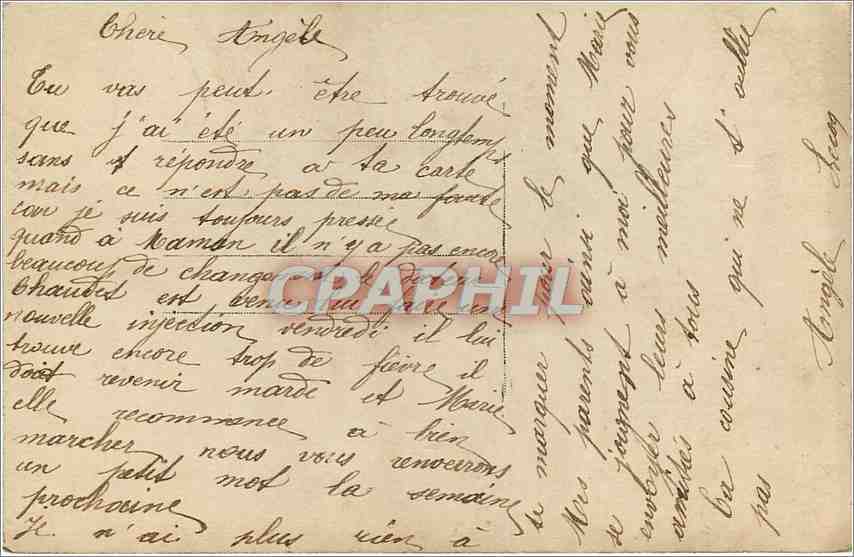 Chère Angèle
Tu vas peut être trouvé
que j'ai été un peu longtem
sans répondre a ta carte
mais ce n'est pas de ma faute
car je suis toujours pressée
quand à Maman il n'y a pas encore
beaucoup de changement le docteur
Chaudet est venu lui faire une
nouvelle injection vendredi il lui
trouve encore trop de fièvre il
doit revenir mardi et Marie
elle recommence à bien
marcher nous vous renverrons
un petit mot la semaine
prochaine
Je n'ai plus rien à
se marquer pour le moment
Mes parents ainsi que Marie
se joignent à moi pour vous
envoyer leurs meilleures
amitiés à tous
Ta cousine qui ne t'oublie
pas
Angèle
CPAPHIL